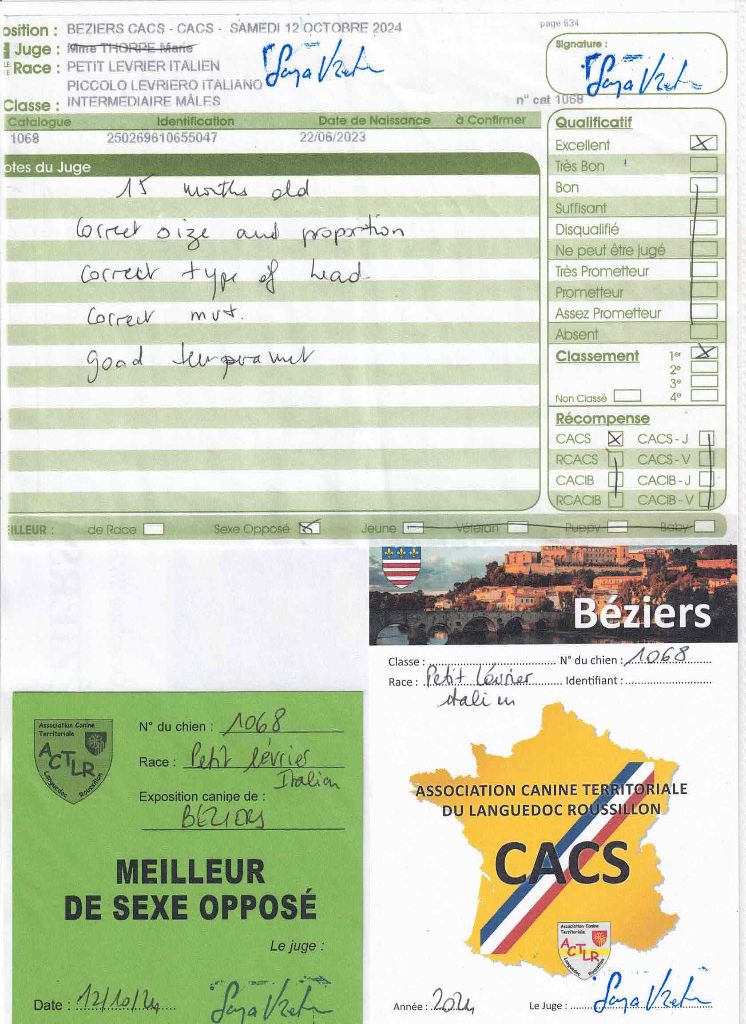 osition : BEZIERS CACS - CACS - SAMEDI 12 OCTOBRE 2024
page 634
Juge : Mme THORPE Marie
Signature :
Race : PETIT LEVRIER ITALIEN
PICCOLO LEVRIERO ITALIANO
Classe : INTERMEDIAIRE MÂLES
n° cat 1068
Catalogue Identification Date de Naissance à Confirmer
1068 250269610655047 22/06/2023
otes du Juge
15 months old
Correct size and proportion
Correct type of head
Correct mvt.
good temperamet
Qualificatif
Excellent
Très Bon
Bon
Suffisant
Disqualifié
Ne peut être jugé
Très Prometteur
Prometteur
Assez Prometteur
Absent
Classement 1er
2e
3e
Non Classé 4e
Récompense
CACS CACS - J
RCACS CACS - V
CACIB CACIB - J
RCACIB CACIB - V
EILLEUR : de Race Sexe Opposé Jeune Vétéran Puppy Baby
Béziers
Classe : N° du chien : 1068
Race : Petit Lévrier Identifiant :
italien
ASSOCIATION CANINE TERRITORIALE
DU LANGUEDOC ROUSSILLON
CACS
Association Canine
Territoriale
ACTLR
Languedoc Roussillon
Année : 2024 Le Juge :
Association Canine
Territoriale
ACTLR
Languedoc Roussillon
N° du chien : 1068
Race : Petit lévrier
Italien
Exposition canine de :
BEZIERS
MEILLEUR
DE SEXE OPPOSÉ
Le juge :
Date : 12/10/24